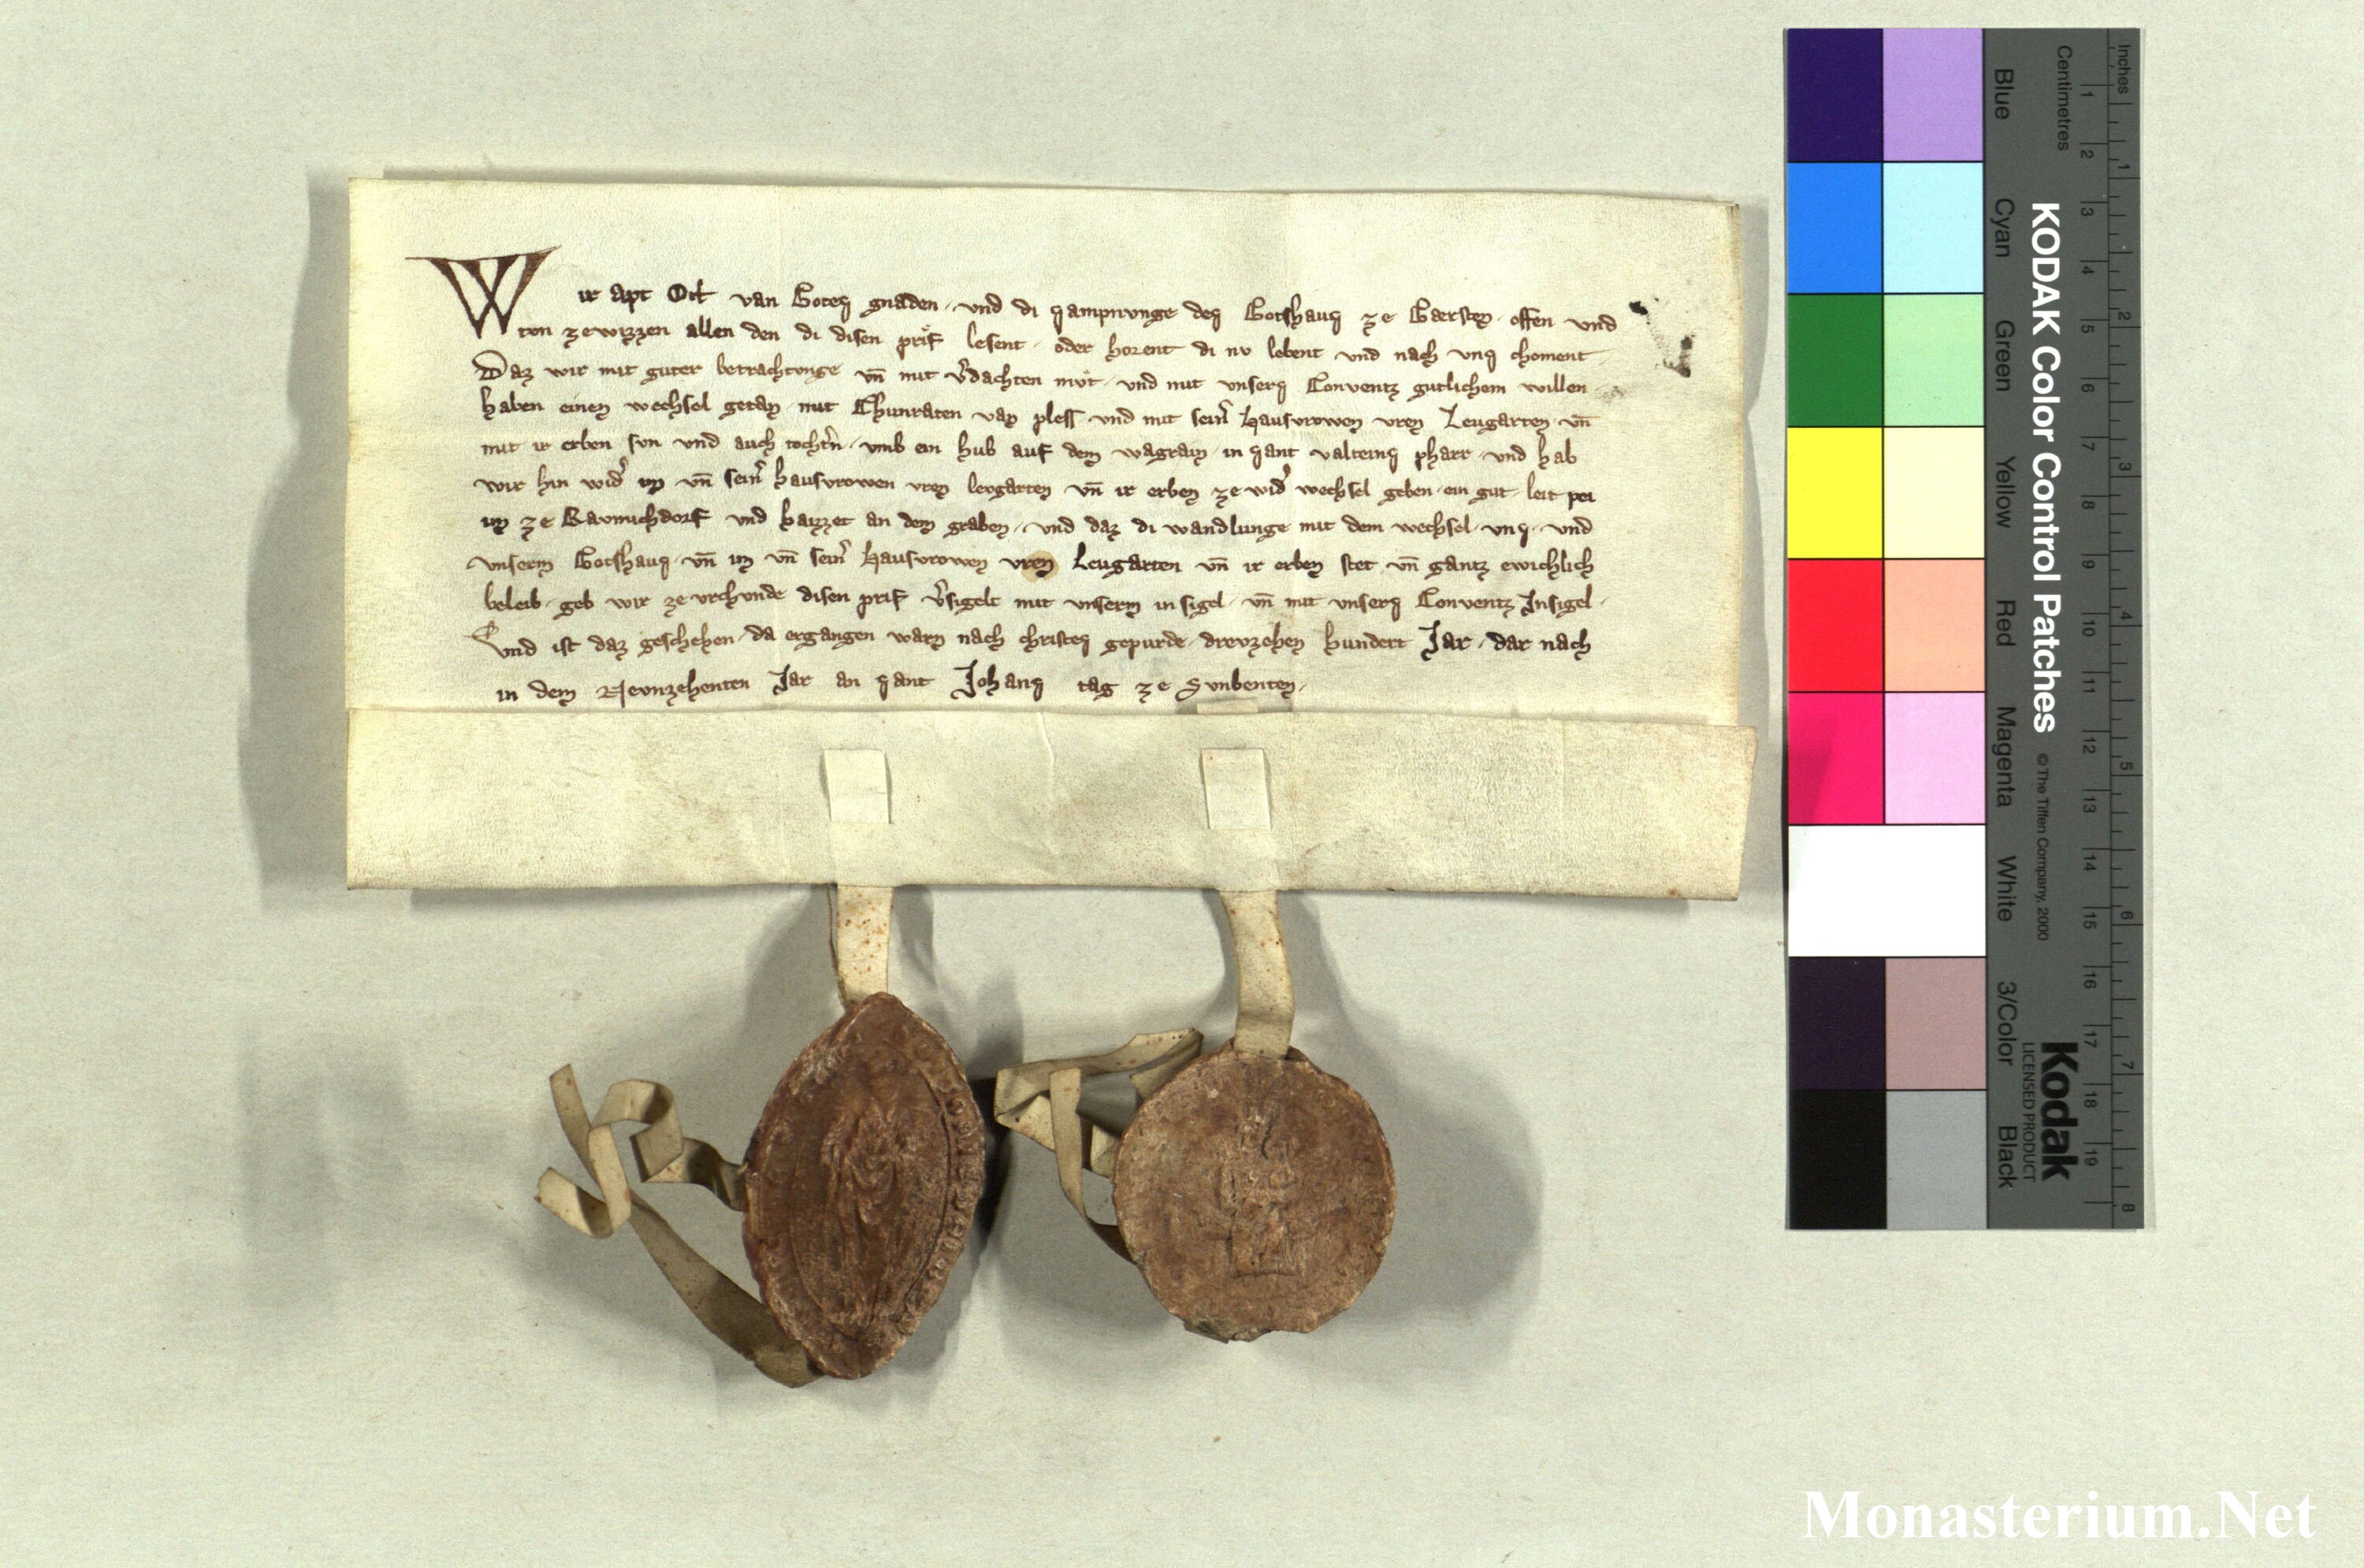 Wir apt Ott van Gotes gnaden · und di sampnunge des Gotshaus ze Gaersten · offen und
tvn ze wizzen allen den di disen prif lesent · oder horent di nv lebent und nach uns choment ·
Daz wir mit guter betrachtunge vn̄ mit v̾dachten mvͦt · und mit unsers Conventz gutlichem willen ·
haben einen wechsel getan mit Chunraten van pless und mit sein̾ hausvrowen vren Leugarten · vn̄
mit ir erben svn und auch tocht̾n · umb ein hub auf dem wagrain · in sant valteins pharr · und hab
wir hin wid̾ im vn̄ sein̾ hausvrowen vren levgarten vn̄ ir erben ze wid̾ wechsel geben · ein gut · leit pei
im ze Ravmichdorf und haizzet an dem graben · und daz di wandlunge mit dem wechsel · uns · und
unserm Gotshaus · vn̄ im vn̄ sein̾ hausvrowen vren Leugarten vn̄ ir erben stet vn̄ gantz ewichlich
beleib · geb wir ze vrchunde disen prif v̾sigelt mit unserm insigel · vn̄ mit unsers Conventz Insigel ·
Und ist daz geschehen · da ergangen warn nach christes gepurde · drevzehen hundert Jar · dar nach
in dem Nevnzehenten Jar an sant Johans tag ze Sunbenten ·
KODAK Color Control Patches
© The Tiffen Company, 2000
Kodak
LICENSED PRODUCT
Blue Cyan Green Yellow Red Magenta White 3/Color Black
Centimetres 1 2 3 4 5 6 7 8 9 10 11 12 13 14 15 16 17 18 19
Inches 1 2 3 4 5 6 7 8
Monasterium.Net